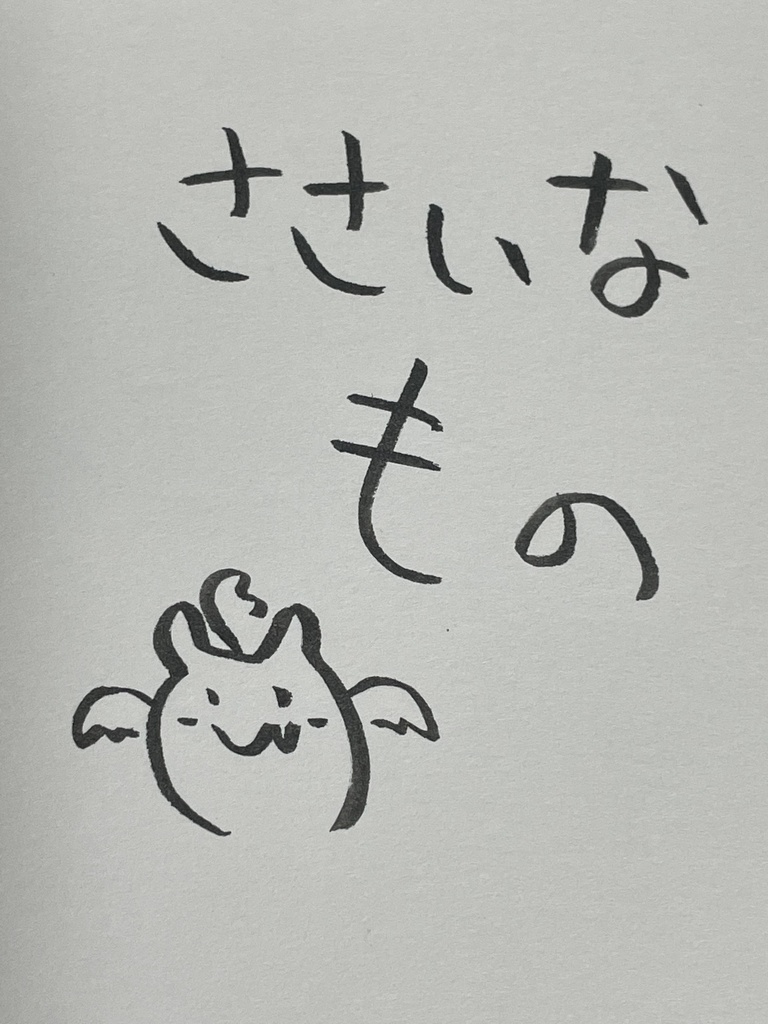 ささいな
もの